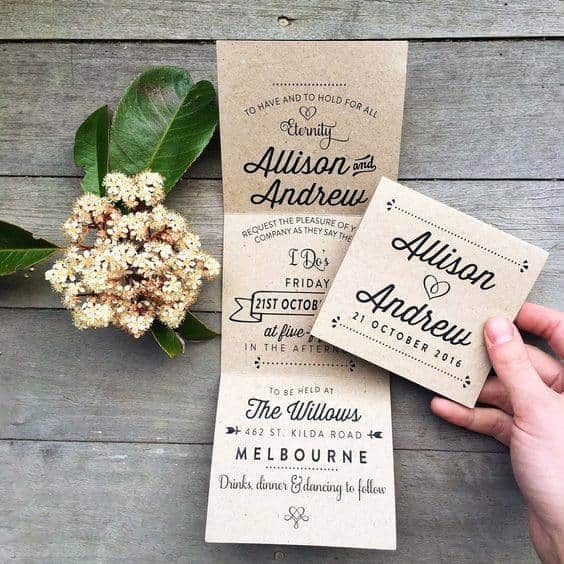 TO HAVE AND TO HOLD FOR ALL
Eternity
Allison and
Andrew
REQUEST THE PLEASURE OF
COMPANY AS THEY SAY THE
I Dos
FRIDAY
21ST OCTOBER
at five
IN THE
TO BE HELD AT
The Willows
462 ST. KILDA ROAD
MELBOURNE
Drinks, dinner & dancing to follow
Allison
Andrew
21 OCTOBER 2016